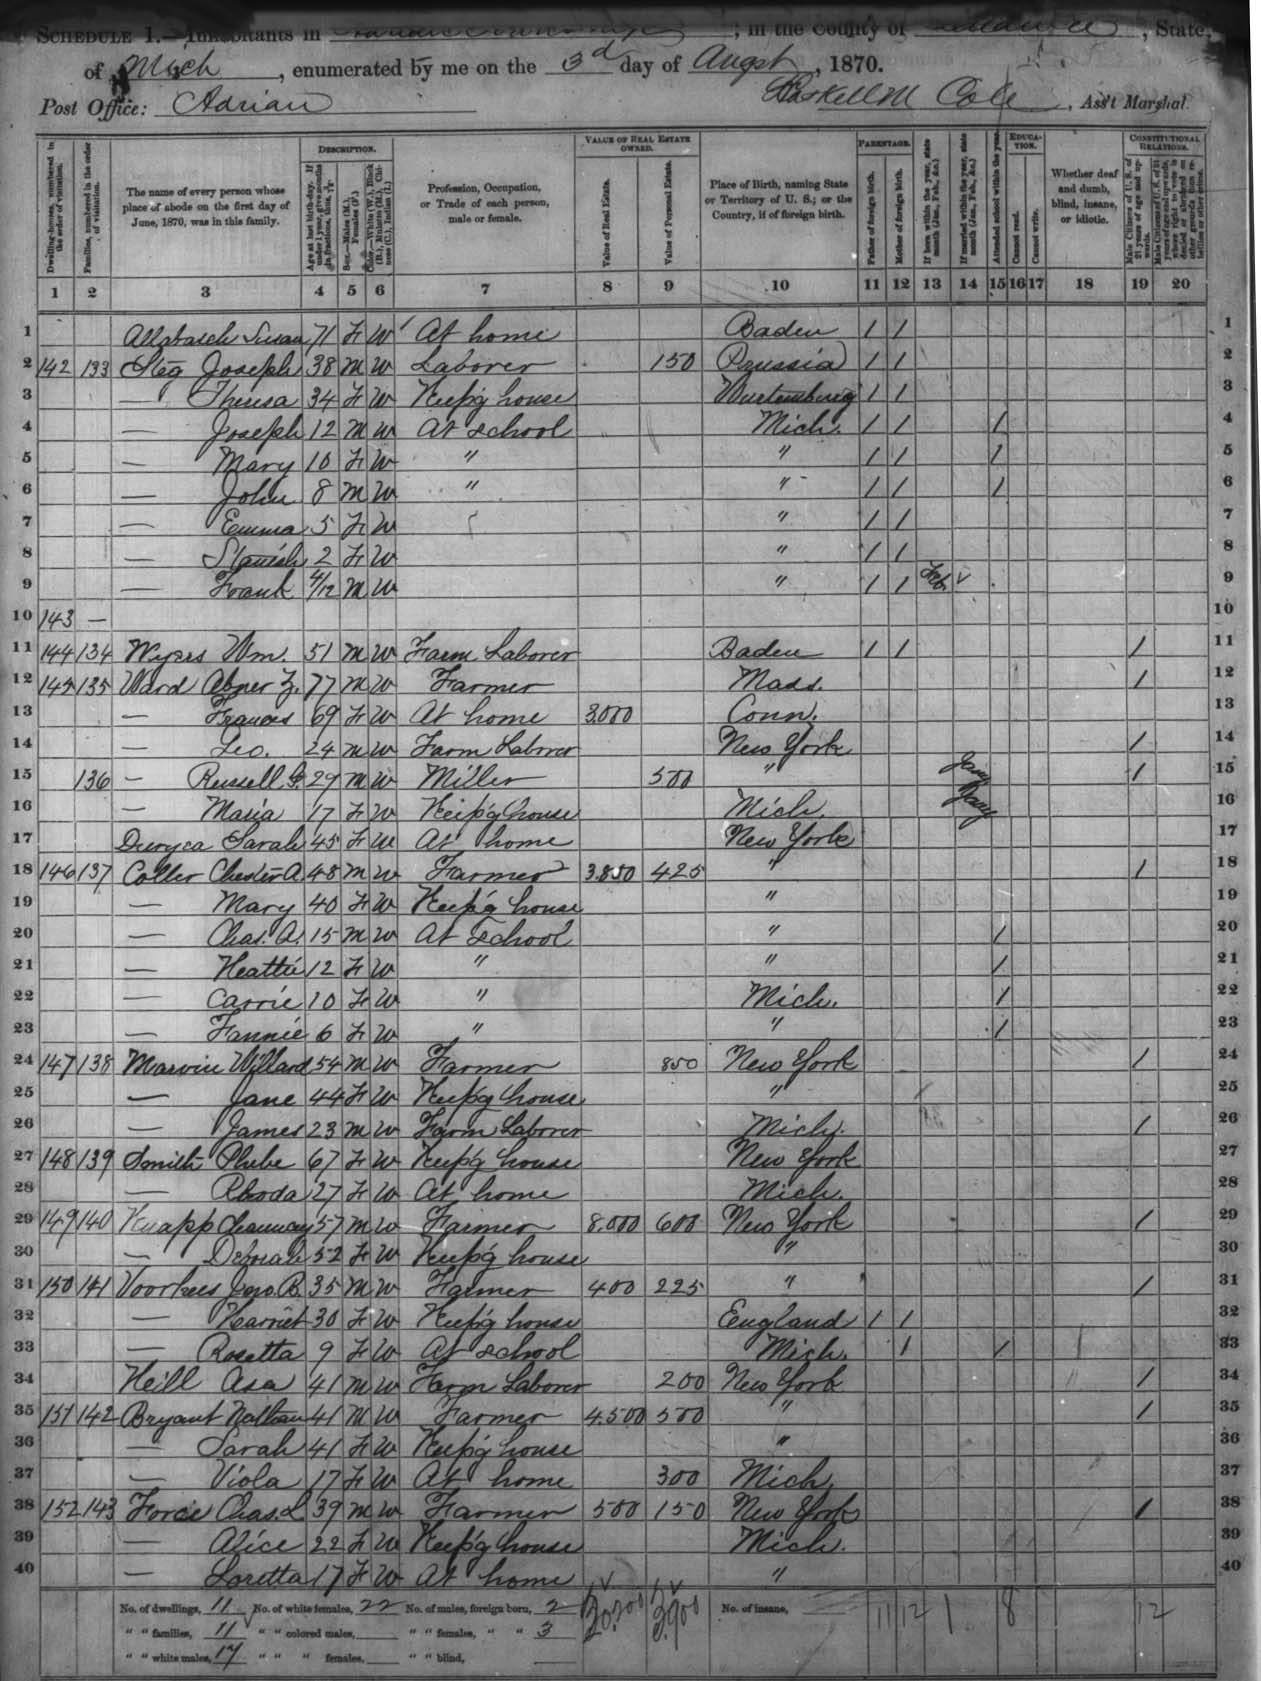 SCHEDULE 1.—Inhabitants in , in the County of , State
of Mich , enumerated by me on the 3d day of Augst , 1870.
Post Office: Adrian Haskell M Cole , Ass't Marshal.
Dwelling-houses, numbered in the order of visitation.
Families, numbered in the order of visitation.
The name of every person whose place of abode on the first day of June, 1870, was in this family.
DESCRIPTION.
Age at last birth-day. If under 1 year, give months in fractions, thus, 3/12
Sex.—Males (M.), Females (F.)
Color.—White (W.), Black (B.), Mulatto (M.), Chinese (C.), Indian (I.)
Profession, Occupation, or Trade of each person, male or female.
VALUE OF REAL ESTATE OWNED.
Value of Real Estate.
Value of Personal Estate.
Place of Birth, naming State or Territory of U. S.; or the Country, if of foreign birth.
PARENTAGE.
Father of foreign birth.
Mother of foreign birth.
If born within the year, state month (Jan., Feb., &c.)
If married within the year, state month (Jan., Feb., &c.)
Attended school within the year.
EDUCATION.
Cannot read.
Cannot write.
Whether deaf and dumb, blind, insane, or idiotic.
CONSTITUTIONAL RELATIONS.
Male Citizens of U. S. of 21 years of age and upwards.
Male Citizens of U. S. of 21 years of age and upwards, where right to vote is denied or abridged on other grounds than rebellion or other crime.
1 2 3 4 5 6 7 8 9 10 11 12 13 14 15 16 17 18 19 20
1 Susan 71 F W At home Baden / / 1
2 142 133 Steg Joseph 38 M W Laborer 150 Prussia / / 2
3 — Theresa 34 F W Keep'g house Wurtemburg / / 3
4 — Joseph 12 M W At school Mich. / / / 4
5 — Mary 10 F W " " / / / 5
6 — John 8 M W " " / / / 6
7 — Emma 5 F W " / / 7
8 — 2 F W " / / 8
9 — Frank 4/12 M W " / / Feb. 9
10 143 — 10
11 144 134 Wyers Wm. 51 M W Farm Laborer Baden / / / 11
12 145 135 Ward Abner Z. 77 M W Farmer Mass. / 12
13 — Frances 69 F W At home 3.000 Conn. 13
14 — Geo. 24 M W Farm Laborer New York / 14
15 136 — Russell G. 29 M W Miller 500 " Jany / 15
16 — Maria 17 F W Keep'g house Mich. Jany 16
17 Duryea Sarah 45 F W At home New York 17
18 146 137 Coller Chester A. 48 M W Farmer 3.850 425 " / 18
19 — Mary 40 F W Keep'g house " 19
20 — Chas. A. 15 M W At School " / 20
21 — Heattie 12 F W " " / 21
22 — Carrie 10 F W " Mich. / 22
23 — Fannie 6 F W " " / 23
24 147 138 Marvin Willard 54 M W Farmer 850 New York / 24
25 — Jane 44 F W Keep'g house " 25
26 — James 23 M W Farm Laborer Mich. / 26
27 148 139 Smith Phebe 67 F W Keep'g house New York 27
28 — Rhoda 27 F W At home Mich. 28
29 149 140 Knapp Chauncey 57 M W Farmer 8.000 600 New York / 29
30 — Deborah 52 F W Keep'g house " 30
31 150 141 Voorhees Jno. B. 35 M W Farmer 400 225 " / 31
32 — Harriet 30 F W Keep'g house England / / 32
33 — Rosetta 9 F W At school Mich. / / 33
34 Heill Asa 41 M W Farm Laborer 200 New York / 34
35 151 142 Bryant Nathan 41 M W Farmer 4.500 500 " / 35
36 — Sarah 41 F W Keep'g house " 36
37 — Viola 17 F W At home 300 Mich 37
38 152 143 Force Chas. L 39 M W Farmer 500 150 New York / 38
39 — Alice 22 F W Keep'g house Mich. 39
40 — Loretta 17 F W At home " 40
No. of dwellings, 11 No. of white females, 22 No. of males, foreign born, 2 20.200 3.900 No. of insane, 11 12 1 8 12
" " families, 11 " " colored males, " " females, " " 3
" " white males, 17 " " " females, " " blind,